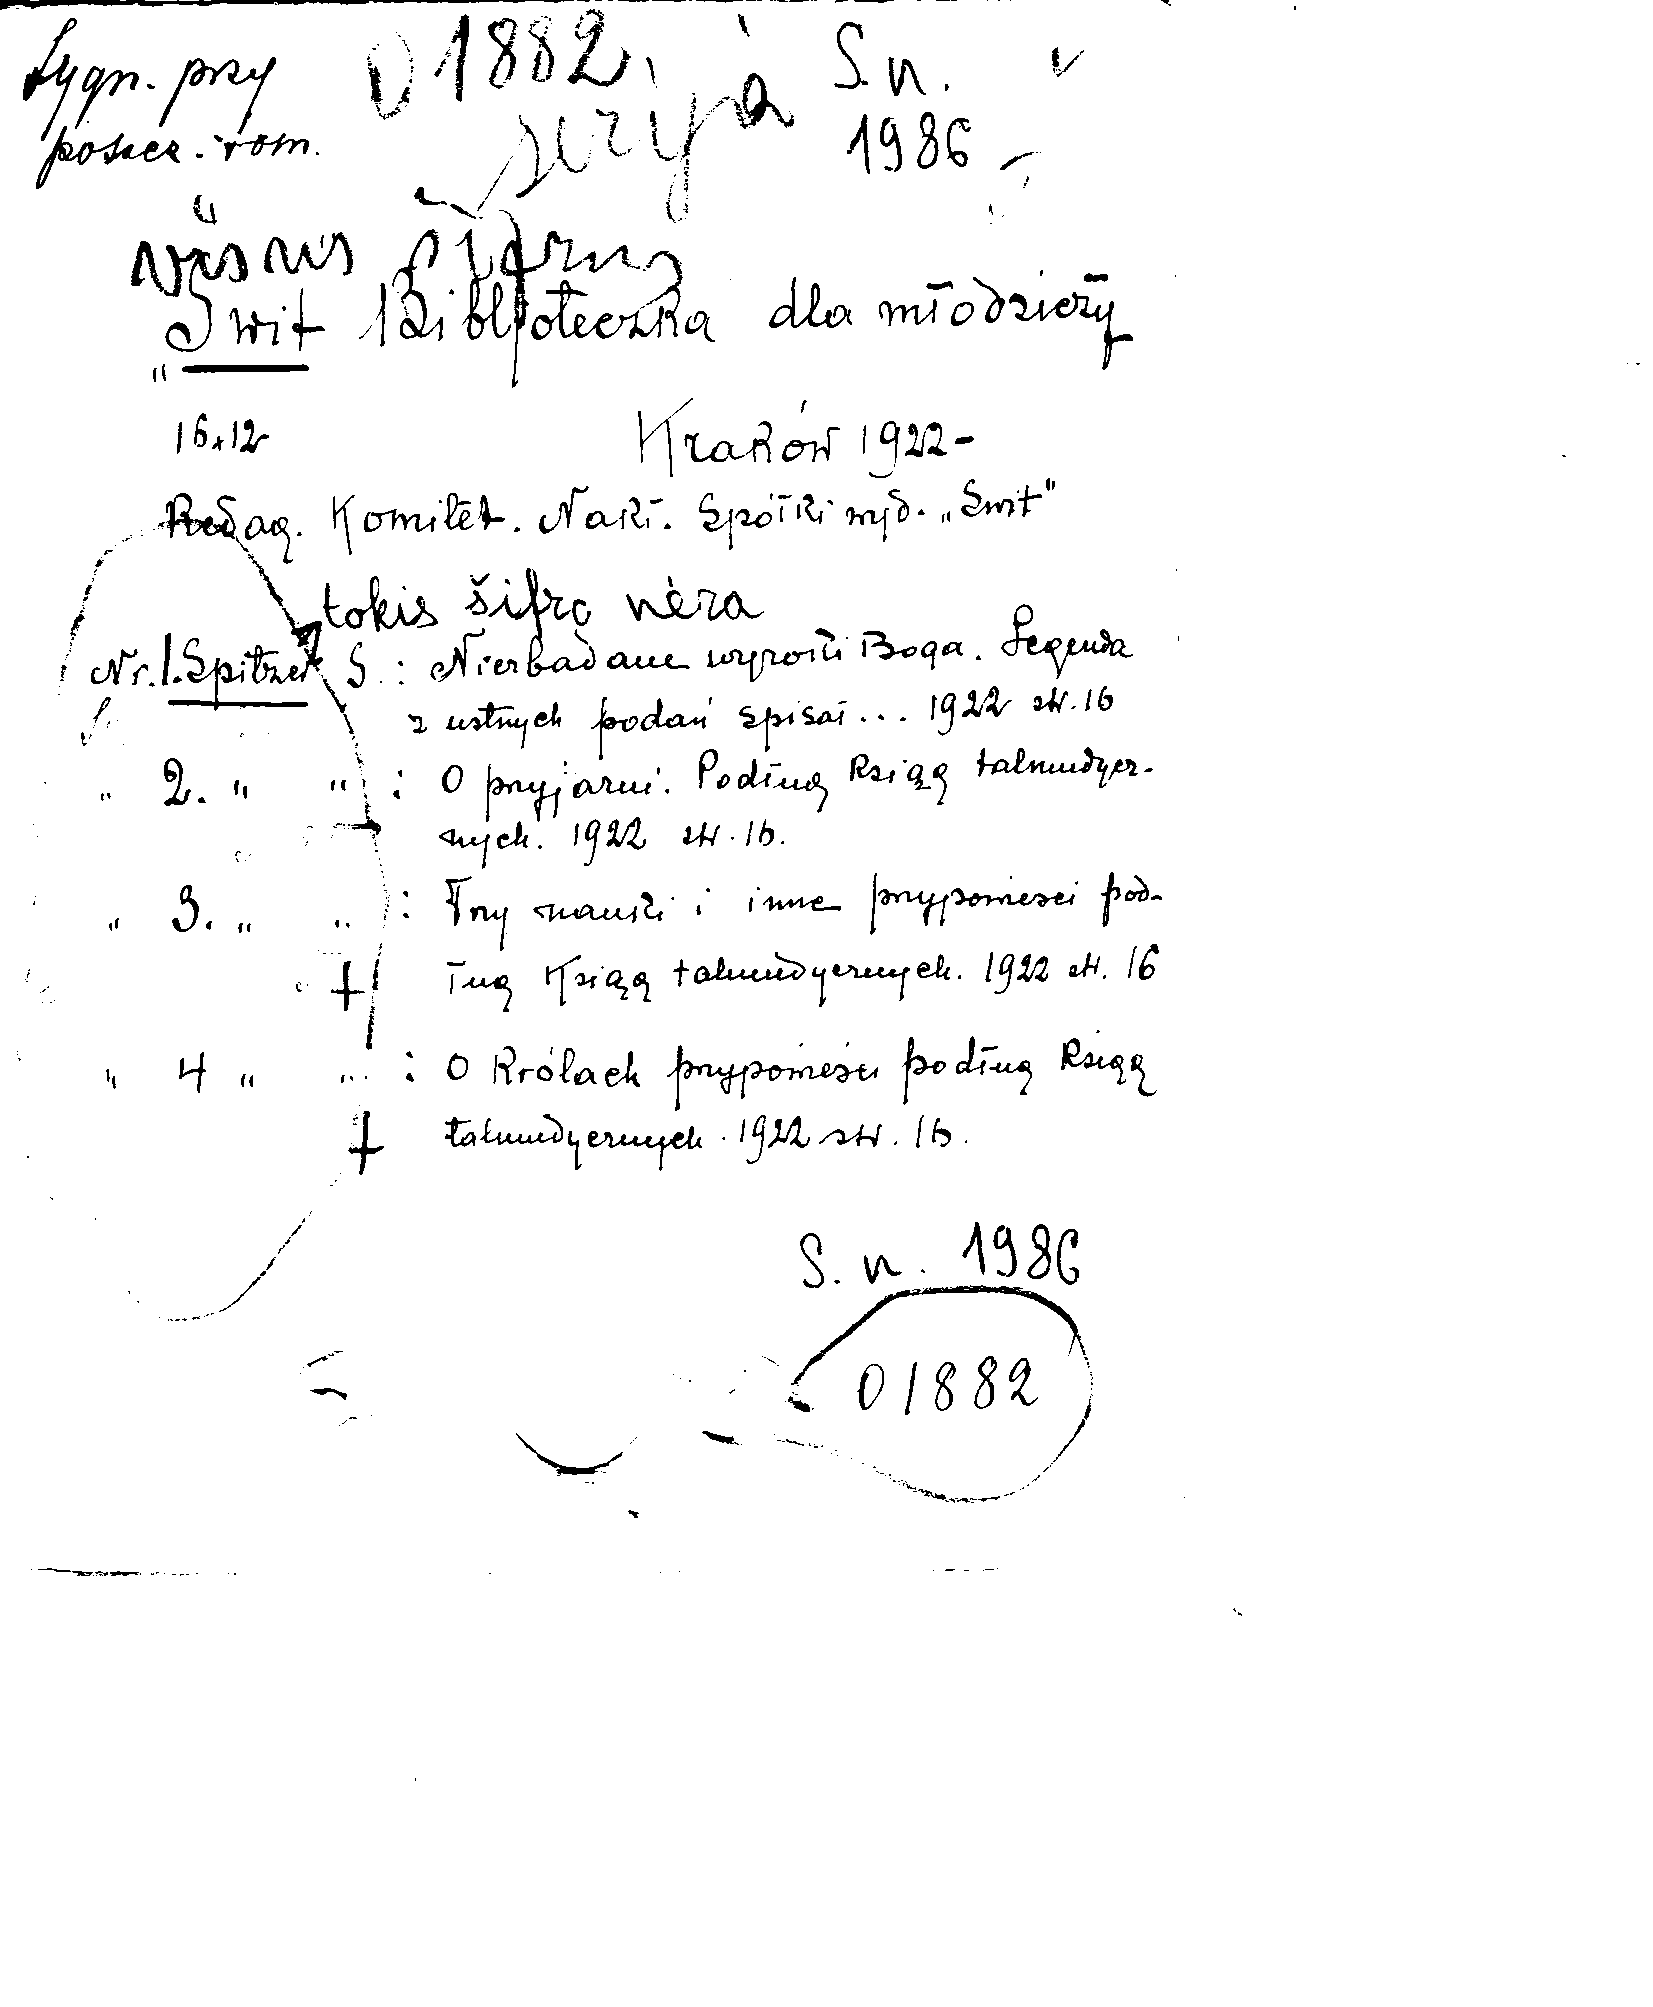 Sygn. przy 01882 S. n.
poszcz. tom. serija 1986
visus šifrus
"Świt" Bibljoteczka dla młodzieży
16x12 Kraków 1922-
Redag. Komitet. Nakł. Spółki wyd. „Świt"
tokis šifrų nėra
Nr. 1. Spitzer S. : Niezbadane wyroki Boga. Legenda
z ustnych podań spisał... 1922 str. 16
" 2. " " : O przyjaźni. Podług Ksiąg talmudycz-
nych. 1922 str. 16.
" 3. " " : Trzy nauki i inne przypowieści pod-
ług Ksiąg talmudycznych. 1922 str. 16
" 4 " " : O Królach przypowieści podług Ksiąg
talmudycznych. 1922 str. 16.
S. n. 1986
01882